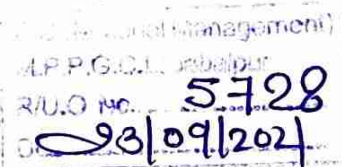 Management)
M.P.P.G.C.L. Jabalpur
R/U.O No. 5728
23/09/202